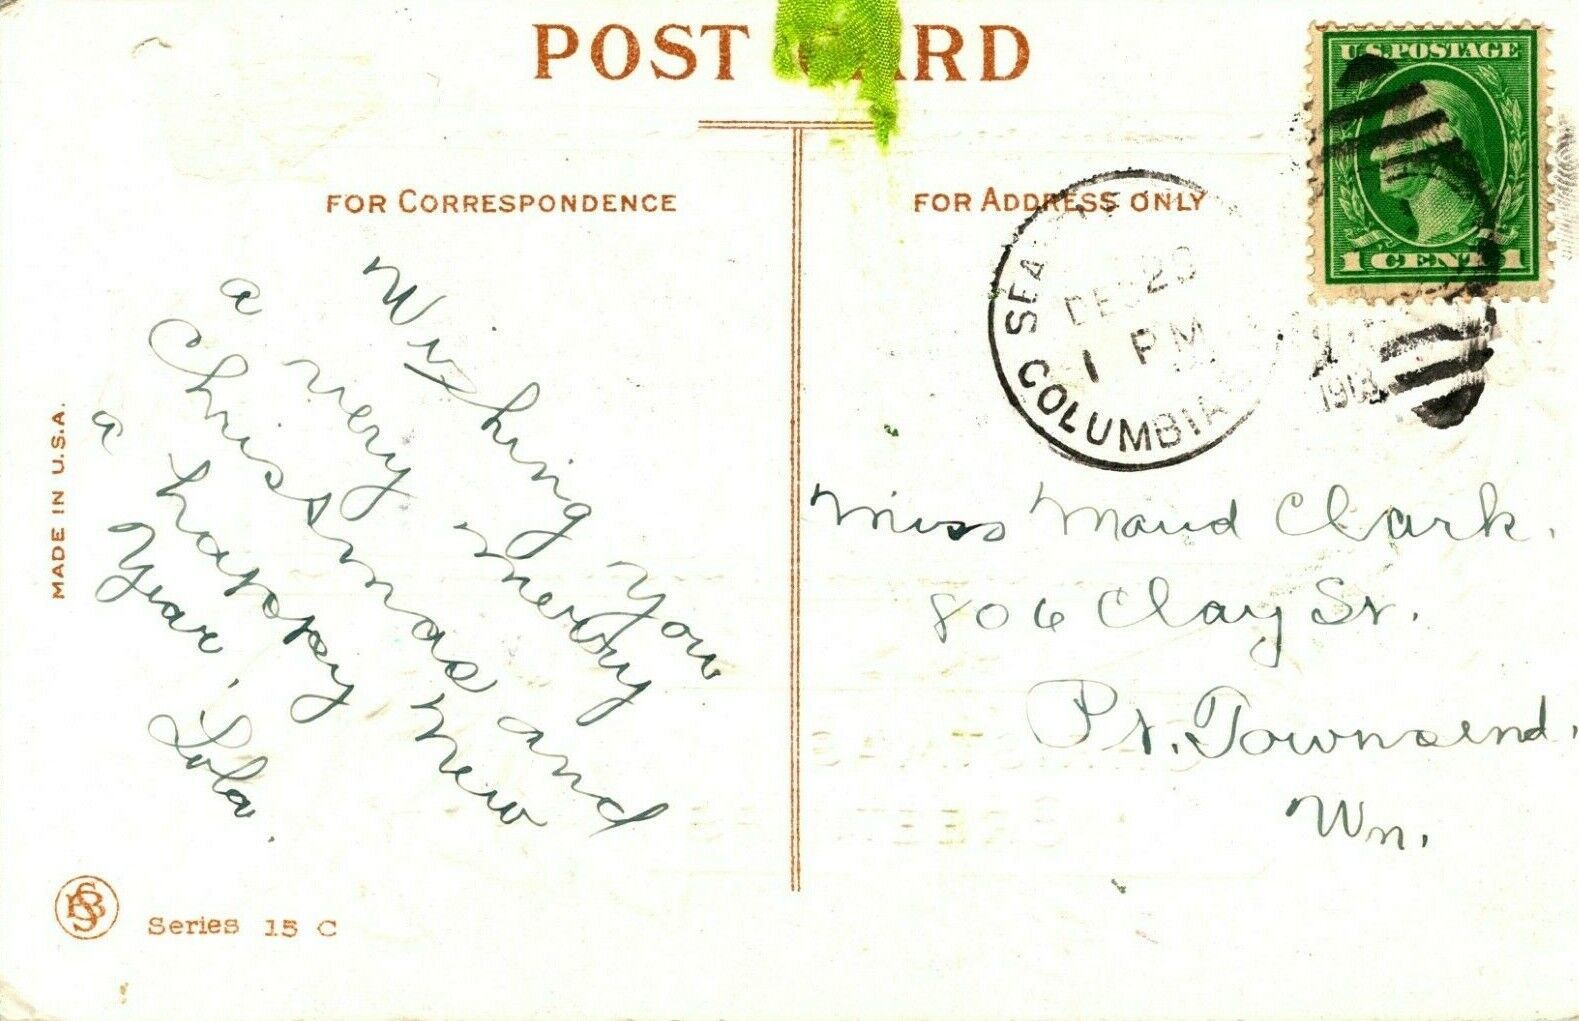 POST CARD
FOR CORRESPONDENCE
FOR ADDRESS ONLY
U.S. POSTAGE
1 CENT 1
DEC 20
1 PM
COLUMBIA
1913
Wishing you
a very merry
Chrissmas and
a happy New
Year,
Lola.
Miss Maud Clark.
806 Clay St.
Pt. Townsend.
Wn.
MADE IN U.S.A.
Series 15 C